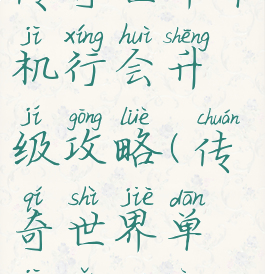 jī xíng huì shēng
机行会升
jí gōng lüè chuán
级攻略(传
qí shì jiè dān
奇世界单